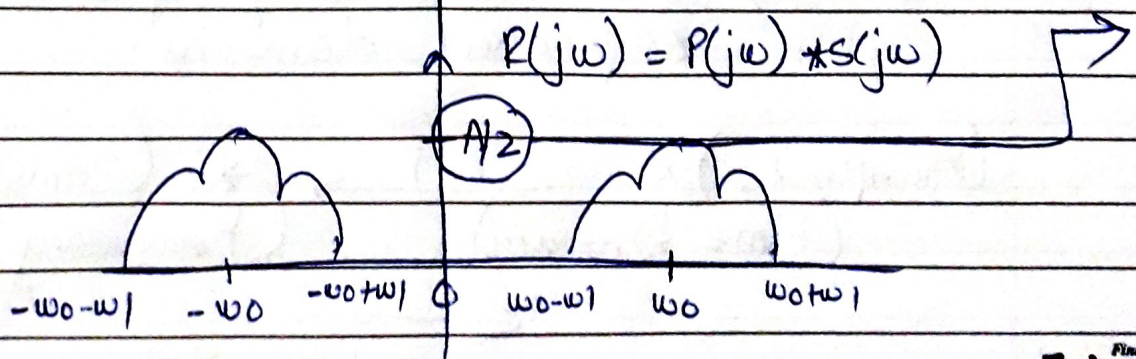 R(jω) = P(jω) *S(jω)
A/2
-ω0-ω1 -ω0 -ω0+ω1 0 ω0-ω1 ω0 ω0+ω1